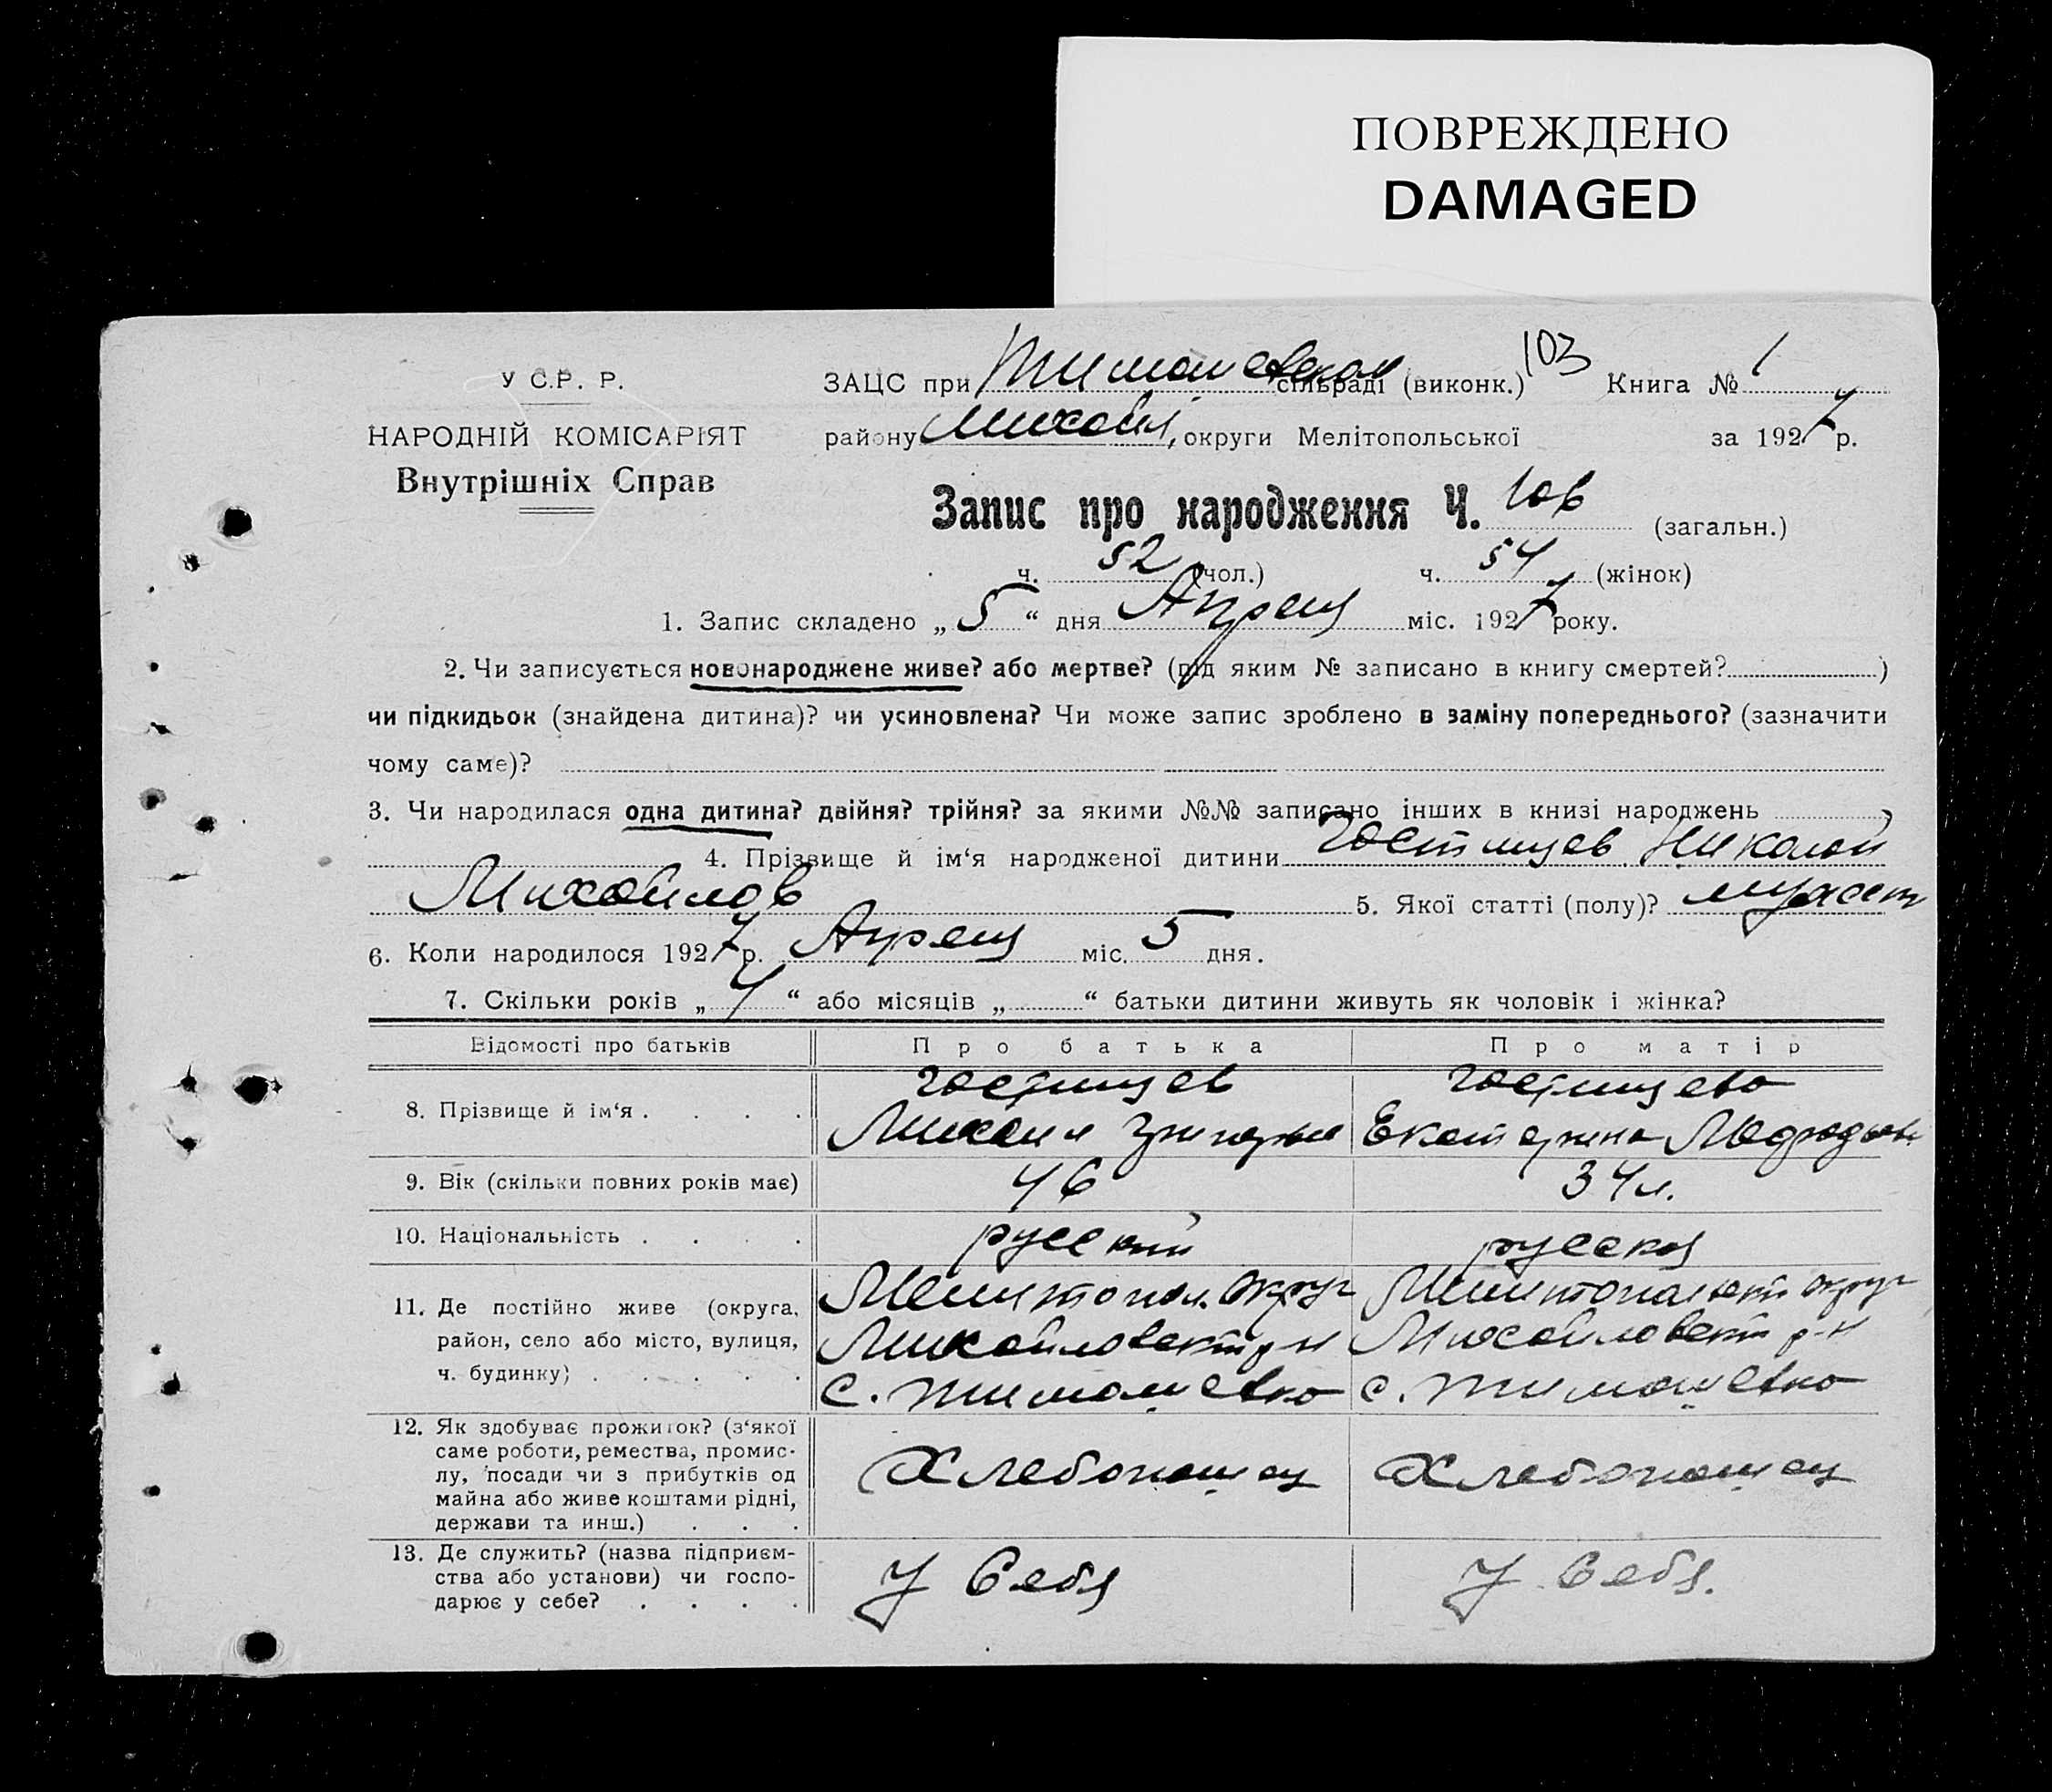 ПОВРЕЖДЕНО
DAMAGED
У С.Р. Р.
НАРОДНІЙ КОМІСАРІЯТ
Внутрішніх Справ
ЗАЦС при Тимошевском сільраді (виконк.) 103 Книга № 1
району Михайл, округи Мелітопольської за 1927 р.
Запис про народження Ч. 106 (загальн.)
ч. 52 (чол.) ч. 54 (жінок)
1. Запис складено „5“ дня Апреля міс. 1927 року.
2. Чи записується новонароджене живе? або мертве? (під яким № записано в книгу смертей? )
чи підкидьок (знайдена дитина)? чи усиновлена? Чи може запис зроблено в заміну попереднього? (зазначити
чому саме)?
3. Чи народилася одна дитина? двійня? трійня? за якими №№ записано інших в книзі народжень
4. Прізвище й ім‘я народженої дитини Гостищев Николай
Михайлов 5. Якої статті (полу)? мужст
6. Коли народилося 1927 р. Апреля міс. 5 дня.
7. Скільки років „ “ або місяців „ “ батьки дитини живуть як чоловік і жінка?
Відомості про батьків Про батька Про матір
8. Прізвище й ім‘я . . . . Гостищев Михаил Гостищева Екатерина
9. Вік (скільки повних років має) 46 34 л.
10. Національність . . . . русский русская
11. Де постійно живе (округа, Мелитопол. округ округ
район, село або місто, вулиця, Михайловск р-н Михайловск р-н
ч. будинку) . . . . . с. Тимошевка с. Тимошевка
12. Як здобуває прожиток? (з‘якої
саме роботи, ремества, промис-
лу, посади чи з прибутків од Хлебопашец Хлебопашец
майна або живе коштами рідні,
держави та инш.) . . .
13. Де служить? (назва підприєм-
ства або установи) чи госпо- У Себя У Себя.
дарює у себе? . . . .